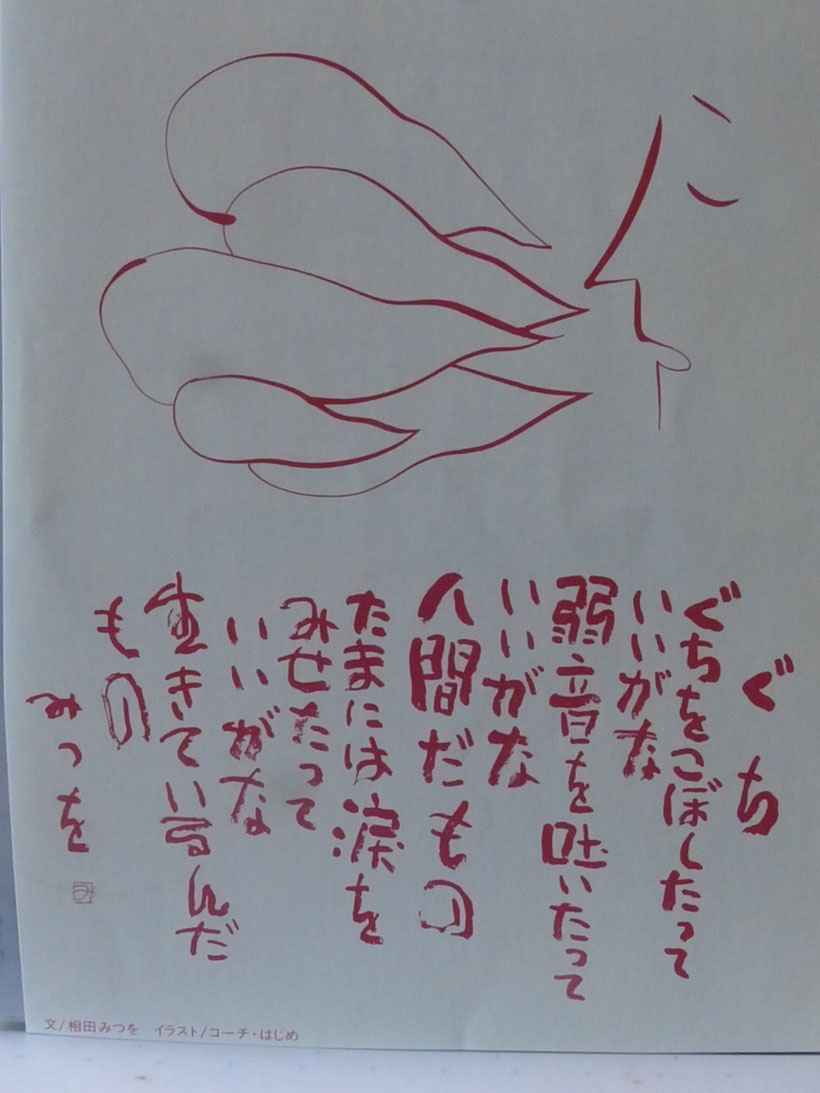 ぐち
ぐちをこぼしたって
いいがな
弱音を吐いたって
いいがな
人間だもの
たまには涙を
みせたって
いいがな
生きているんだ
もの
みつを
み
文/相田みつを イラスト/コーチ・はじめ